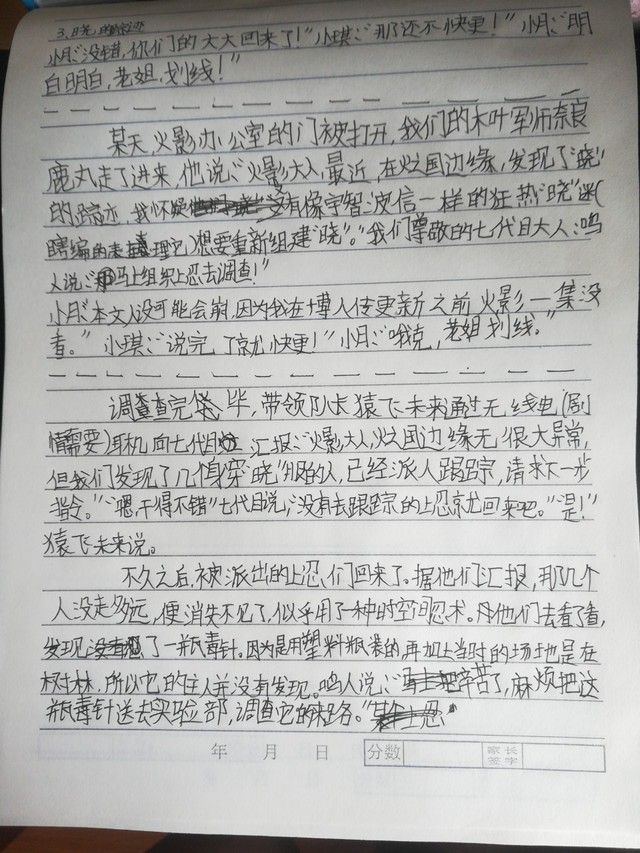 3.晓的踪迹
小月:“没错,你们的大大回来了!”小琪:“那还不快更!”小月:“明
白明白,老姐,划线!”
某天,火影办公室的门被打开,我们的木叶军师奈良
鹿丸走了进来,他说:“火影大人,最近,在火之国边缘,发现了‘晓’
的踪迹,我怀疑有像宇智波信一样的狂热‘晓’迷(
瞎编的未理它)想要重新组建‘晓’。”我们尊敬的七代目大人:鸣
人说:“马上组织上忍去调查!”
小月:“本文人设可能会崩,因为我在博人传更新之前,火影一集没
看。”小琪:“说完了就快更!”小月:“哦克,老姐划线。”
调查完毕,带领队长猿飞未来通过无线电(剧
情需要)耳机向七代目汇报:“火影大人,火之国边缘无很大异常,
但我们发现了几个身穿‘晓’服的人,已经派人跟踪,请求下一步
指令。”“嗯,干得不错”七代目说:“没有去跟踪的上忍就回来吧。”“是!”
猿飞未来说。
不久之后,被派出的上忍们回来了。据他们汇报,那几个
人没走多远,便消失不见了,似乎用了一种时空间忍术。他们去看了看,
发现了一瓶毒针。因为是用塑料瓶装的,再加上当时的场地也是在
树林,所以它的主人并没有发现。鸣人说:“辛苦了,麻烦把这
瓶毒针送去实验部,调查它的来路。”
年 月 日 分数 家长签字